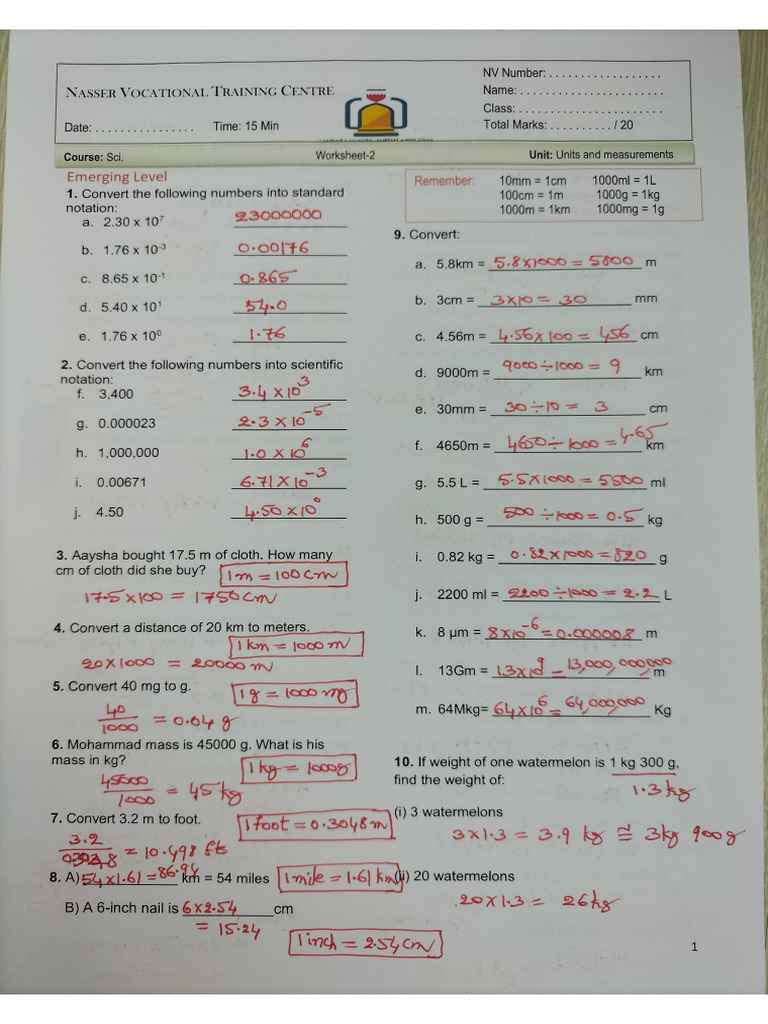 NASSER VOCATIONAL TRAINING CENTRE
Date: . . . . . . . . . . . . . . . . Time: 15 Min
NV Number: . . . . . . . . . . . . . . . . . .
Name: . . . . . . . . . . . . . . . . . . . . . . .
Class: . . . . . . . . . . . . . . . . . . . . . . .
Total Marks: . . . . . . . . . . / 20
Course: Sci. Worksheet-2 Unit: Units and measurements
Emerging Level
1. Convert the following numbers into standard
notation:
a. 2.30 x 10⁷ 23000000
b. 1.76 x 10⁻³ 0.00176
c. 8.65 x 10⁻¹ 0.865
d. 5.40 x 10¹ 54.0
e. 1.76 x 10⁰ 1.76
2. Convert the following numbers into scientific
notation:
f. 3,400 3.4 x 10³
g. 0.000023 2.3 x 10⁻⁵
h. 1,000,000 1.0 x 10⁶
i. 0.00671 6.71 x 10⁻³
j. 4.50 4.50 x 10⁰
3. Aaysha bought 17.5 m of cloth. How many
cm of cloth did she buy? 1m = 100cm
17.5 x 100 = 1750 cm
4. Convert a distance of 20 km to meters.
1km = 1000 m
20 x 1000 = 20000 m
5. Convert 40 mg to g. 1g = 1000 mg
40/1000 = 0.04 g
6. Mohammad mass is 45000 g. What is his
mass in kg? 1kg = 1000g
45000/1000 = 45 kg
7. Convert 3.2 m to foot. 1 foot = 0.3048 m
3.2/0.3048 = 10.498 fts
8. A) 54 x 1.61 = 86.94 km = 54 miles 1 mile = 1.61 km
B) A 6-inch nail is 6 x 2.54 cm
= 15.24
1 inch = 2.54 cm
Remember: 10mm = 1cm 1000ml = 1L
100cm = 1m 1000g = 1kg
1000m = 1km 1000mg = 1g
9. Convert:
a. 5.8km = 5.8 x 1000 = 5800 m
b. 3cm = 3 x 10 = 30 mm
c. 4.56m = 4.56 x 100 = 456 cm
d. 9000m = 9000 ÷ 1000 = 9 km
e. 30mm = 30 ÷ 10 = 3 cm
f. 4650m = 4650 ÷ 1000 = 4.65 km
g. 5.5 L = 5.5 x 1000 = 5500 ml
h. 500 g = 500 ÷ 1000 = 0.5 kg
i. 0.82 kg = 0.82 x 1000 = 820 g
j. 2200 ml = 2200 ÷ 1000 = 2.2 L
k. 8 µm = 8 x 10⁻⁶ = 0.000008 m
l. 13Gm = 13 x 10⁹ = 13,000,000,000 m
m. 64Mkg= 64 x 10⁶ = 64,000,000 Kg
10. If weight of one watermelon is 1 kg 300 g,
find the weight of: 1.3 kg
(i) 3 watermelons
3 x 1.3 = 3.9 kg ≅ 3kg 900 g
(ii) 20 watermelons
20 x 1.3 = 26 kg
1